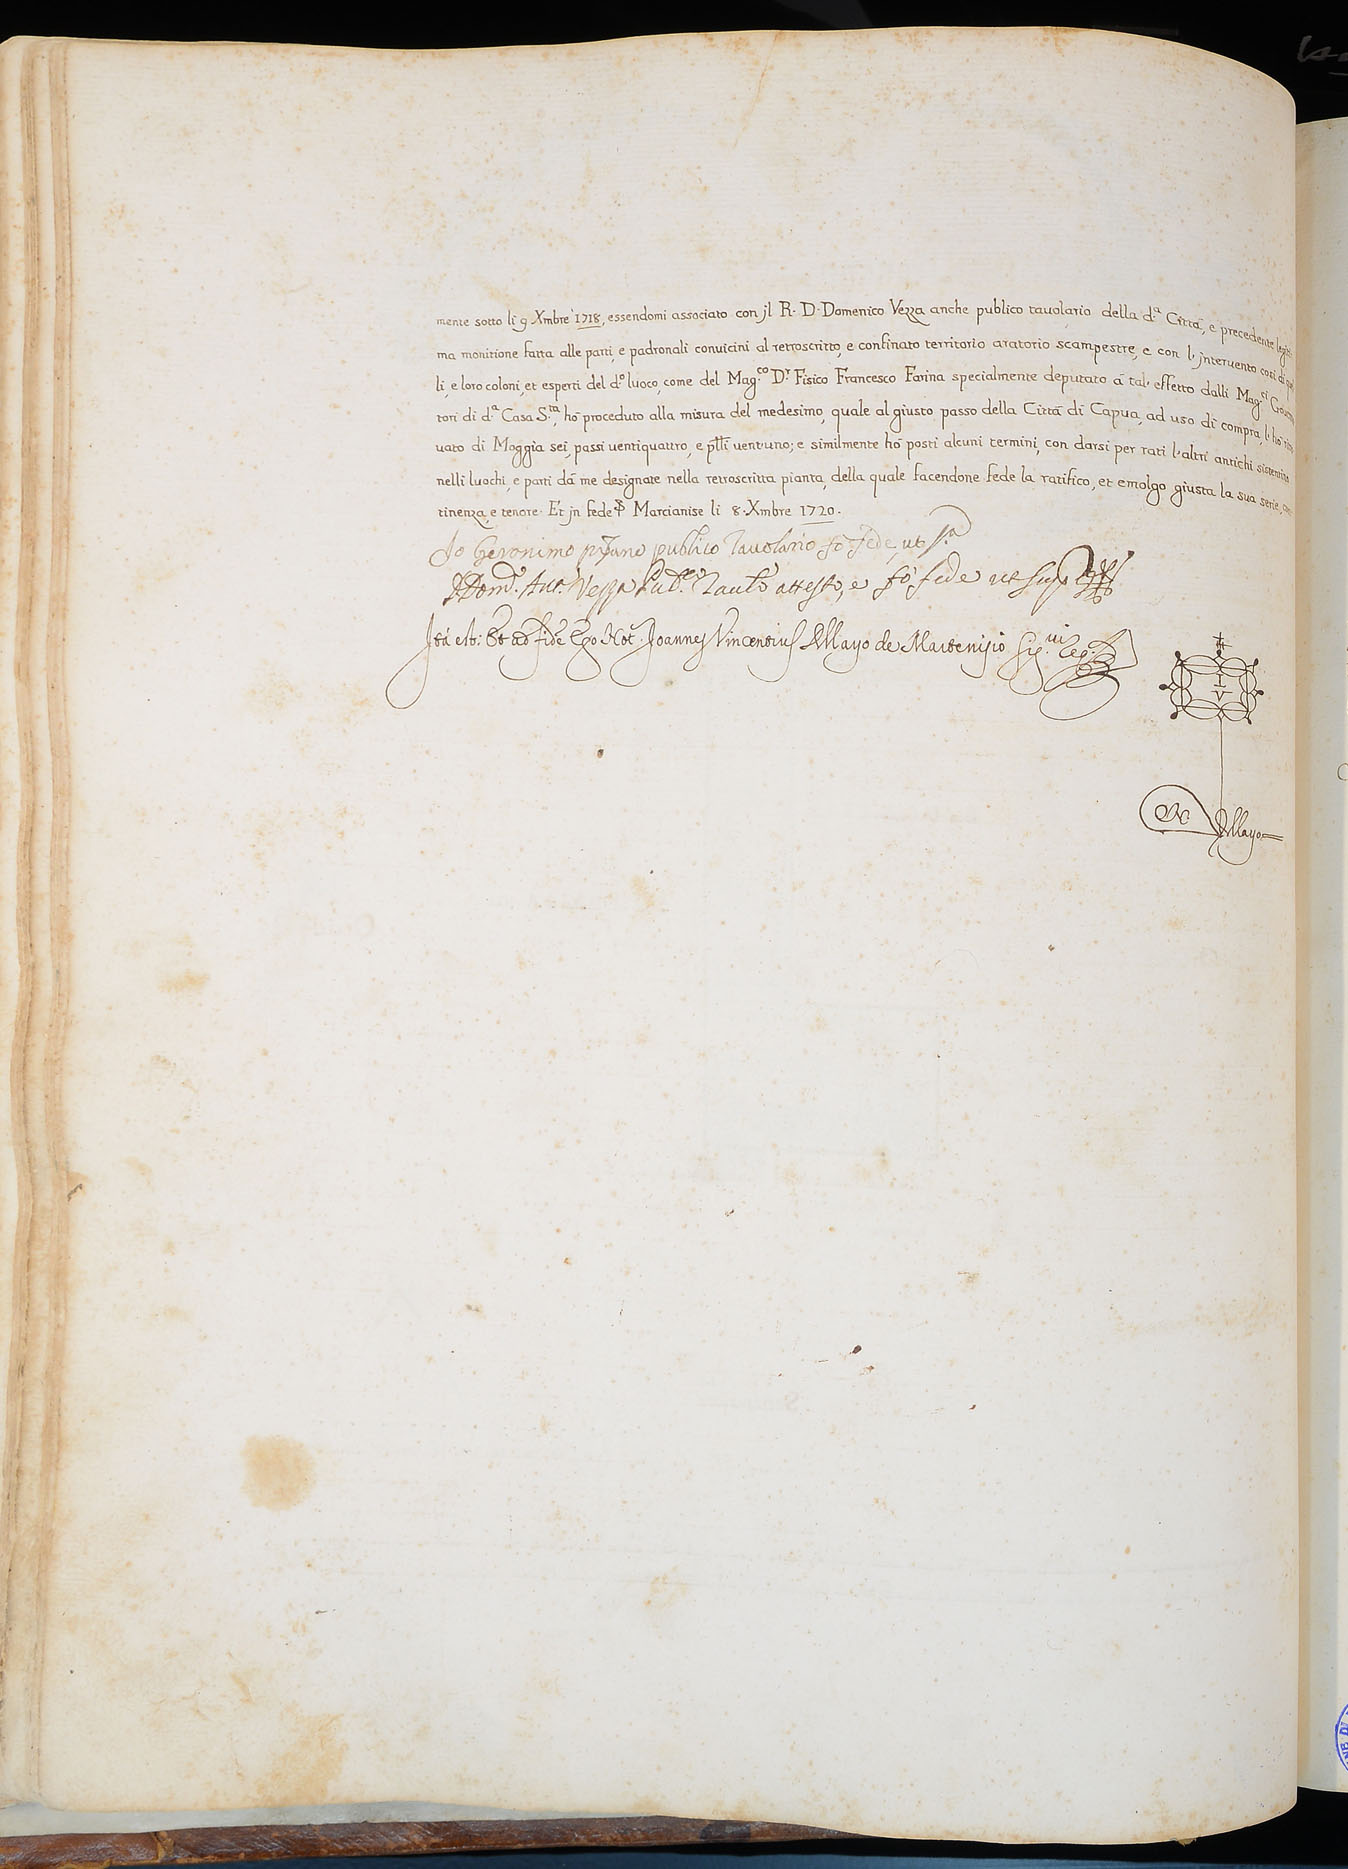 mente sotto li 9 Xmbre 1718, essendomi associato con jl R. D. Domenico Vezza anche publico tavolario della d.ª Città, e precedente legiti-
ma monitione fatta alle parti, e padronali convicini al retroscritto, e confinato territorio aratorio scampestre, e con l'jntervento così di
li, e loro coloni, et esperti del d.º luoco, come del Mag.co D.r Fisico Francesco Farina specialmente deputato à tal' effetto dalli Mag.ci
tori di d.ª Casa S.ta, hò proceduto alla misura del medesimo, quale al giusto passo della Città di Capua, ad uso di compra, l'hò
vato di Moggia sei, passi ventiquattro, e ventuno; e similmente hò posti alcuni termini, con darsi per rati l'altri antichi
nelli luochi, e parti dà me designate nella retroscritta pianta, della quale facendone fede la ratifico, et emolgo giusta la sua serie,
tinenza, e tenore. Et jn fede Marcianise li 8. Xmbre 1720.
Io Geronimo publico Tavolario fò fede, ut s.ª
D. Dom.º Ant.º Vezza Pub.co Taul.º attesto, e fò fede ut sup.ª
Ità est: Et ad fidẽ Ego Not.s Joannes Vincentius de Mayo de Martenisio
I
V
de Mayo